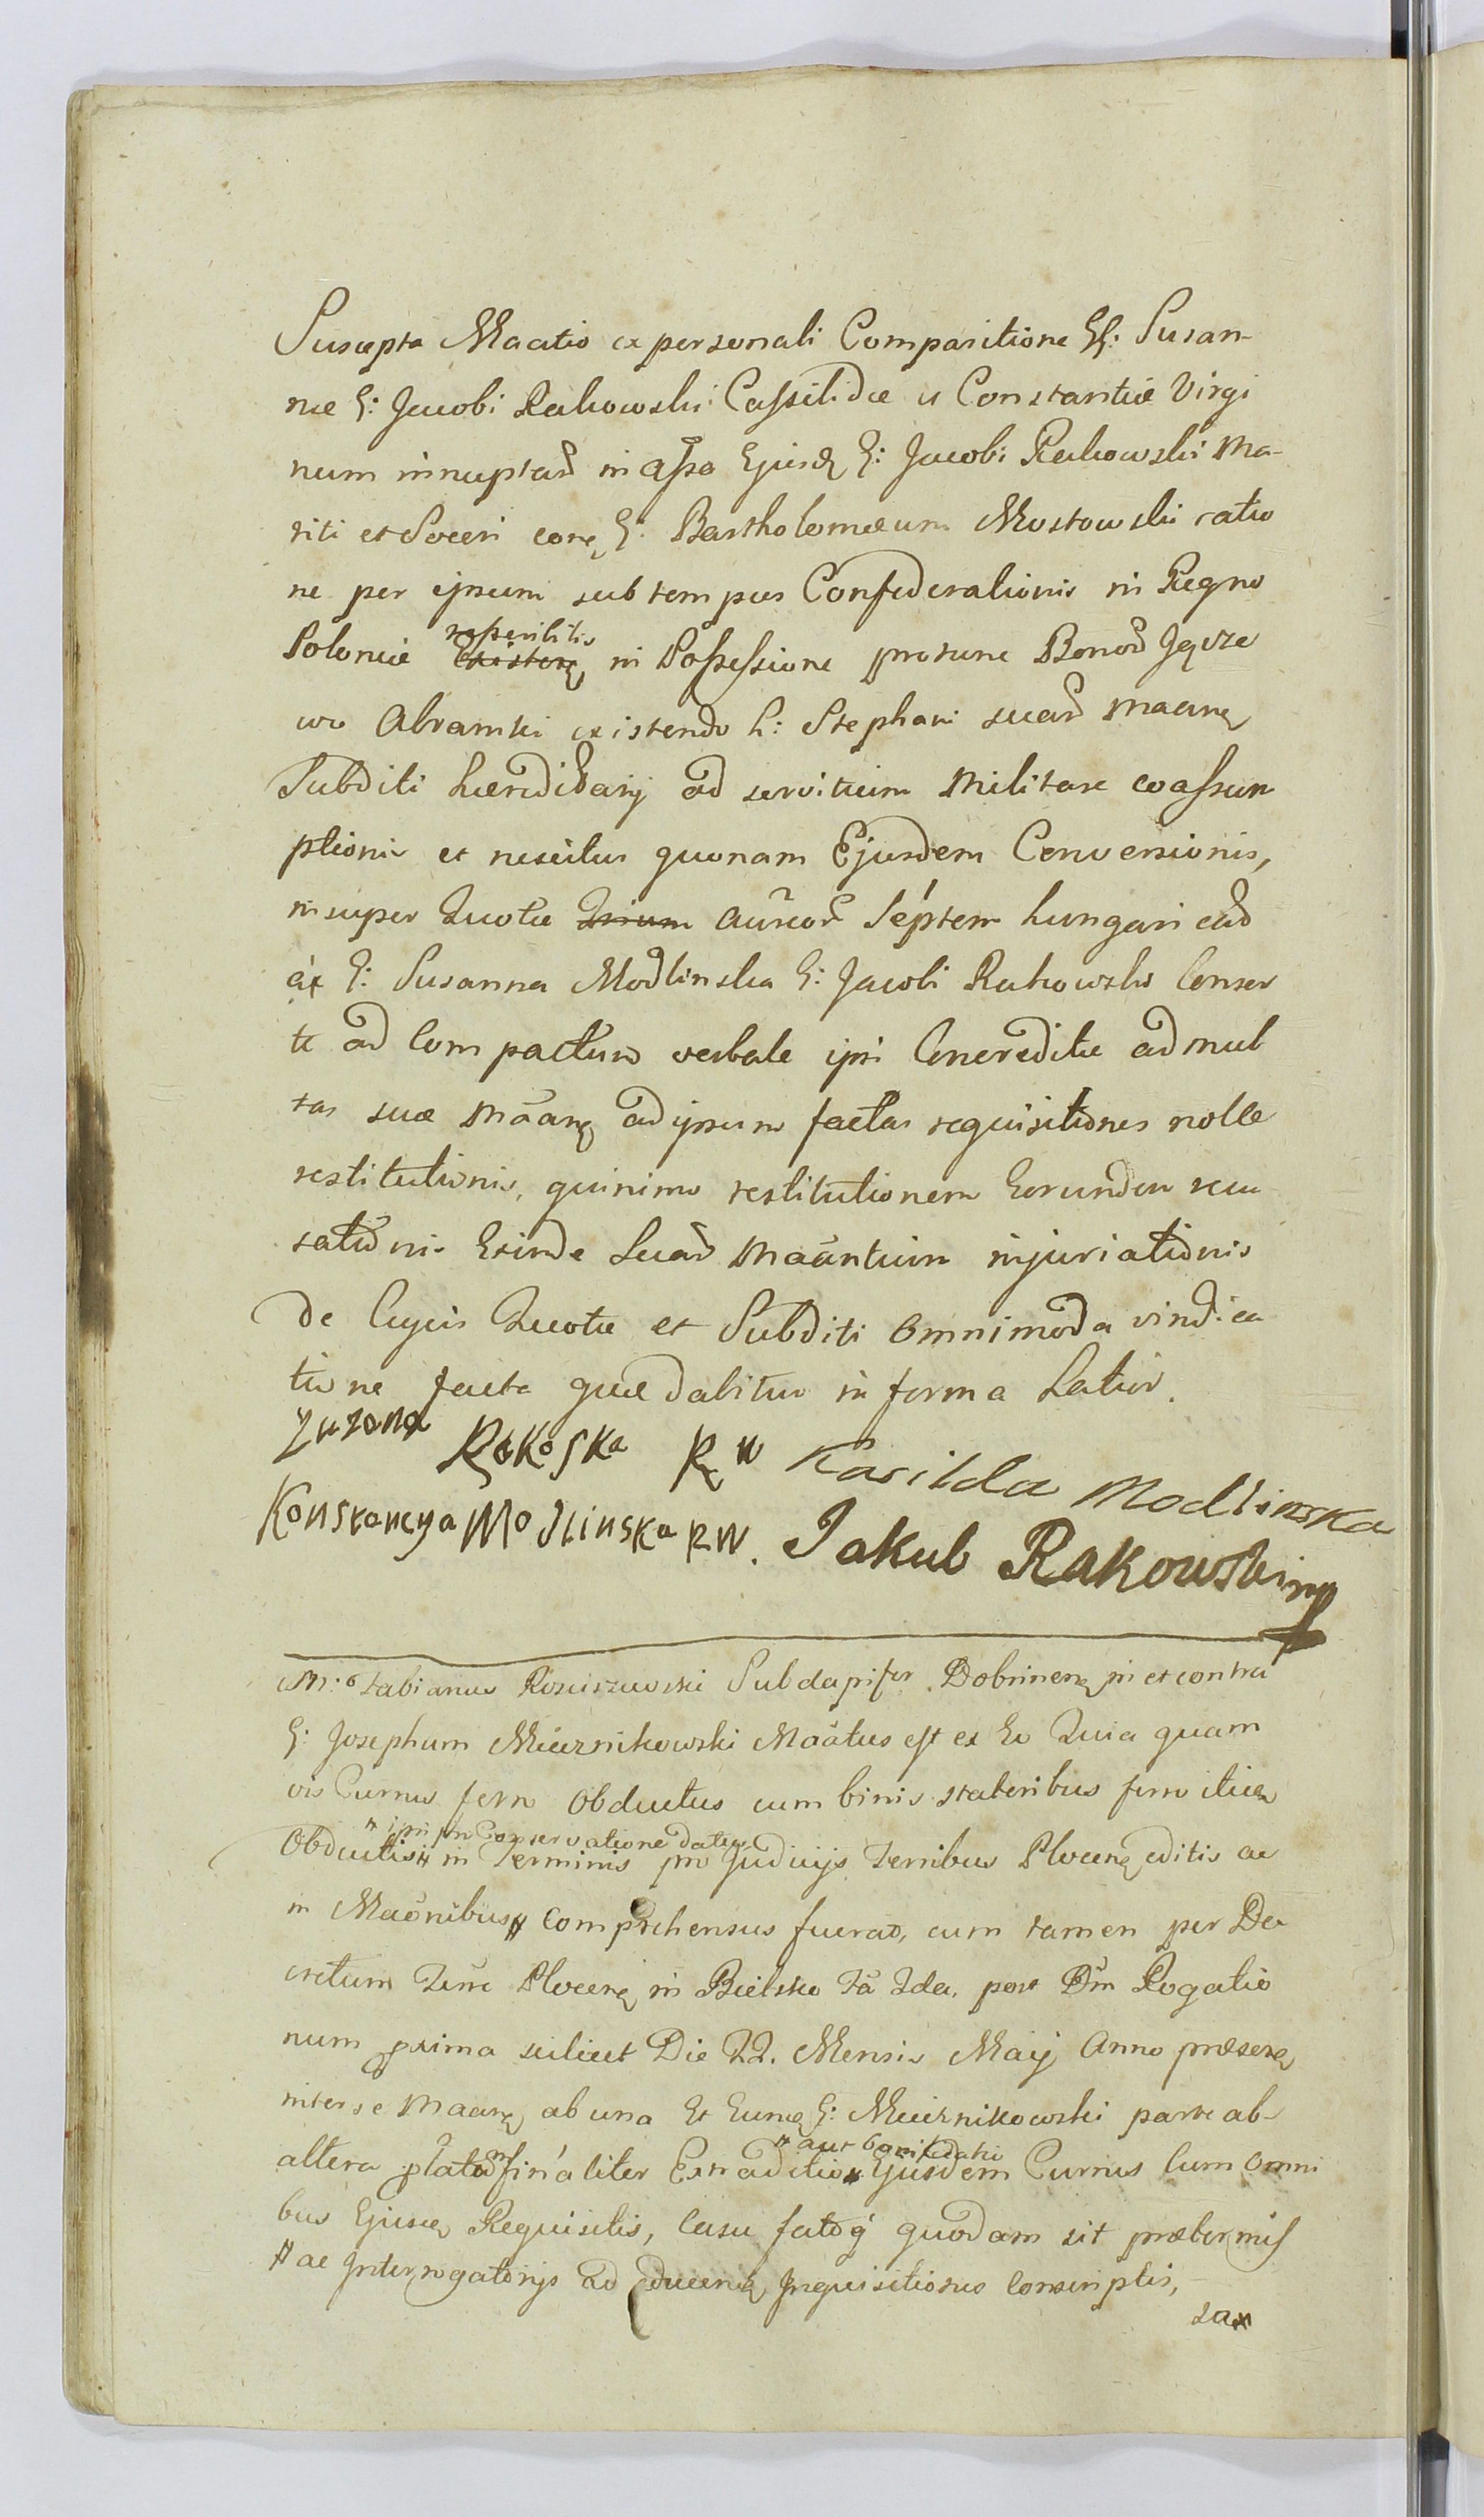 Suscepta Maatio ex personali Comparitione GG: Susan-
næ G: Jacobi Rakowski Cassildæ et Constantiæ Virgi
num innuptar̃ in assa Ejusd̃ G: Jacobi Rakowski Ma-
riti et Soceri con̨ G: Bartholomæum Mostowski ratio
ne per ipsum sub tempus Confederationis in Regno
Poloniæ in Possessione protunc Bonor̃
wo Abramki existendo h: Stephani suar̃ maan̨
Subditi hæreditarij ad servitium Militare coassum
ptionis et nescitur quonam Ejusdem Conversionis,
insuper Quotæ Trium aureor̃ Septem hungaricar̃
ex G: Susanna Modlinska G: Jacobi Rakowski Consor
te ad Compactum verbale ipsi Concreditæ ad mul
tas suæ Maan̨ ad ipsum factas requisitiones nolle
restitutionis, quinimo restitutionem Eorundem recu
sationis Exinde Suar̃ Maantium injuriationis
de Cujus Quotæ et Subditi omnimoda vindica
tione facta quæ dabitur in forma Latior.
Zuzana Rakoska R W Kasilda Modlinska
Konstancya Modlinska RW. Jakub Rakowski mp
M: G Fabianus Rosciszewski Subdapifer Dobrinen̨ in et contra
G: Josephum Miecznikowski Maatus est ex Eo Quia quam
vis Currus ferro obductus cum binis stateribus ferro itidem
# ipsi pro Conservatione datus
Obductis # in Terminis pro Judicijs Terribus Plocen̨ editis ac
in Maonibus # Comprehensus fuerat, cum tamen per De
cretum Terre Plocen̨ in Bielsko fã 2da post Dm̃ Rogatio
num proxima scilicet Die 22. Mensis Maij Anno præsen̨
inter se Maan̨ ab una Et Eun̨ G: Miecznikowski parte ab
# aut
altera platum finaliter Extraditio # Ejusdem Currus Cum Omni
bus Ejusd̨ Requisitis, Casu fatoq̃ quodam sit prætermis
# ac Interrogatorijs ad educen̨ Inquisitiones Conscriptis,
sa